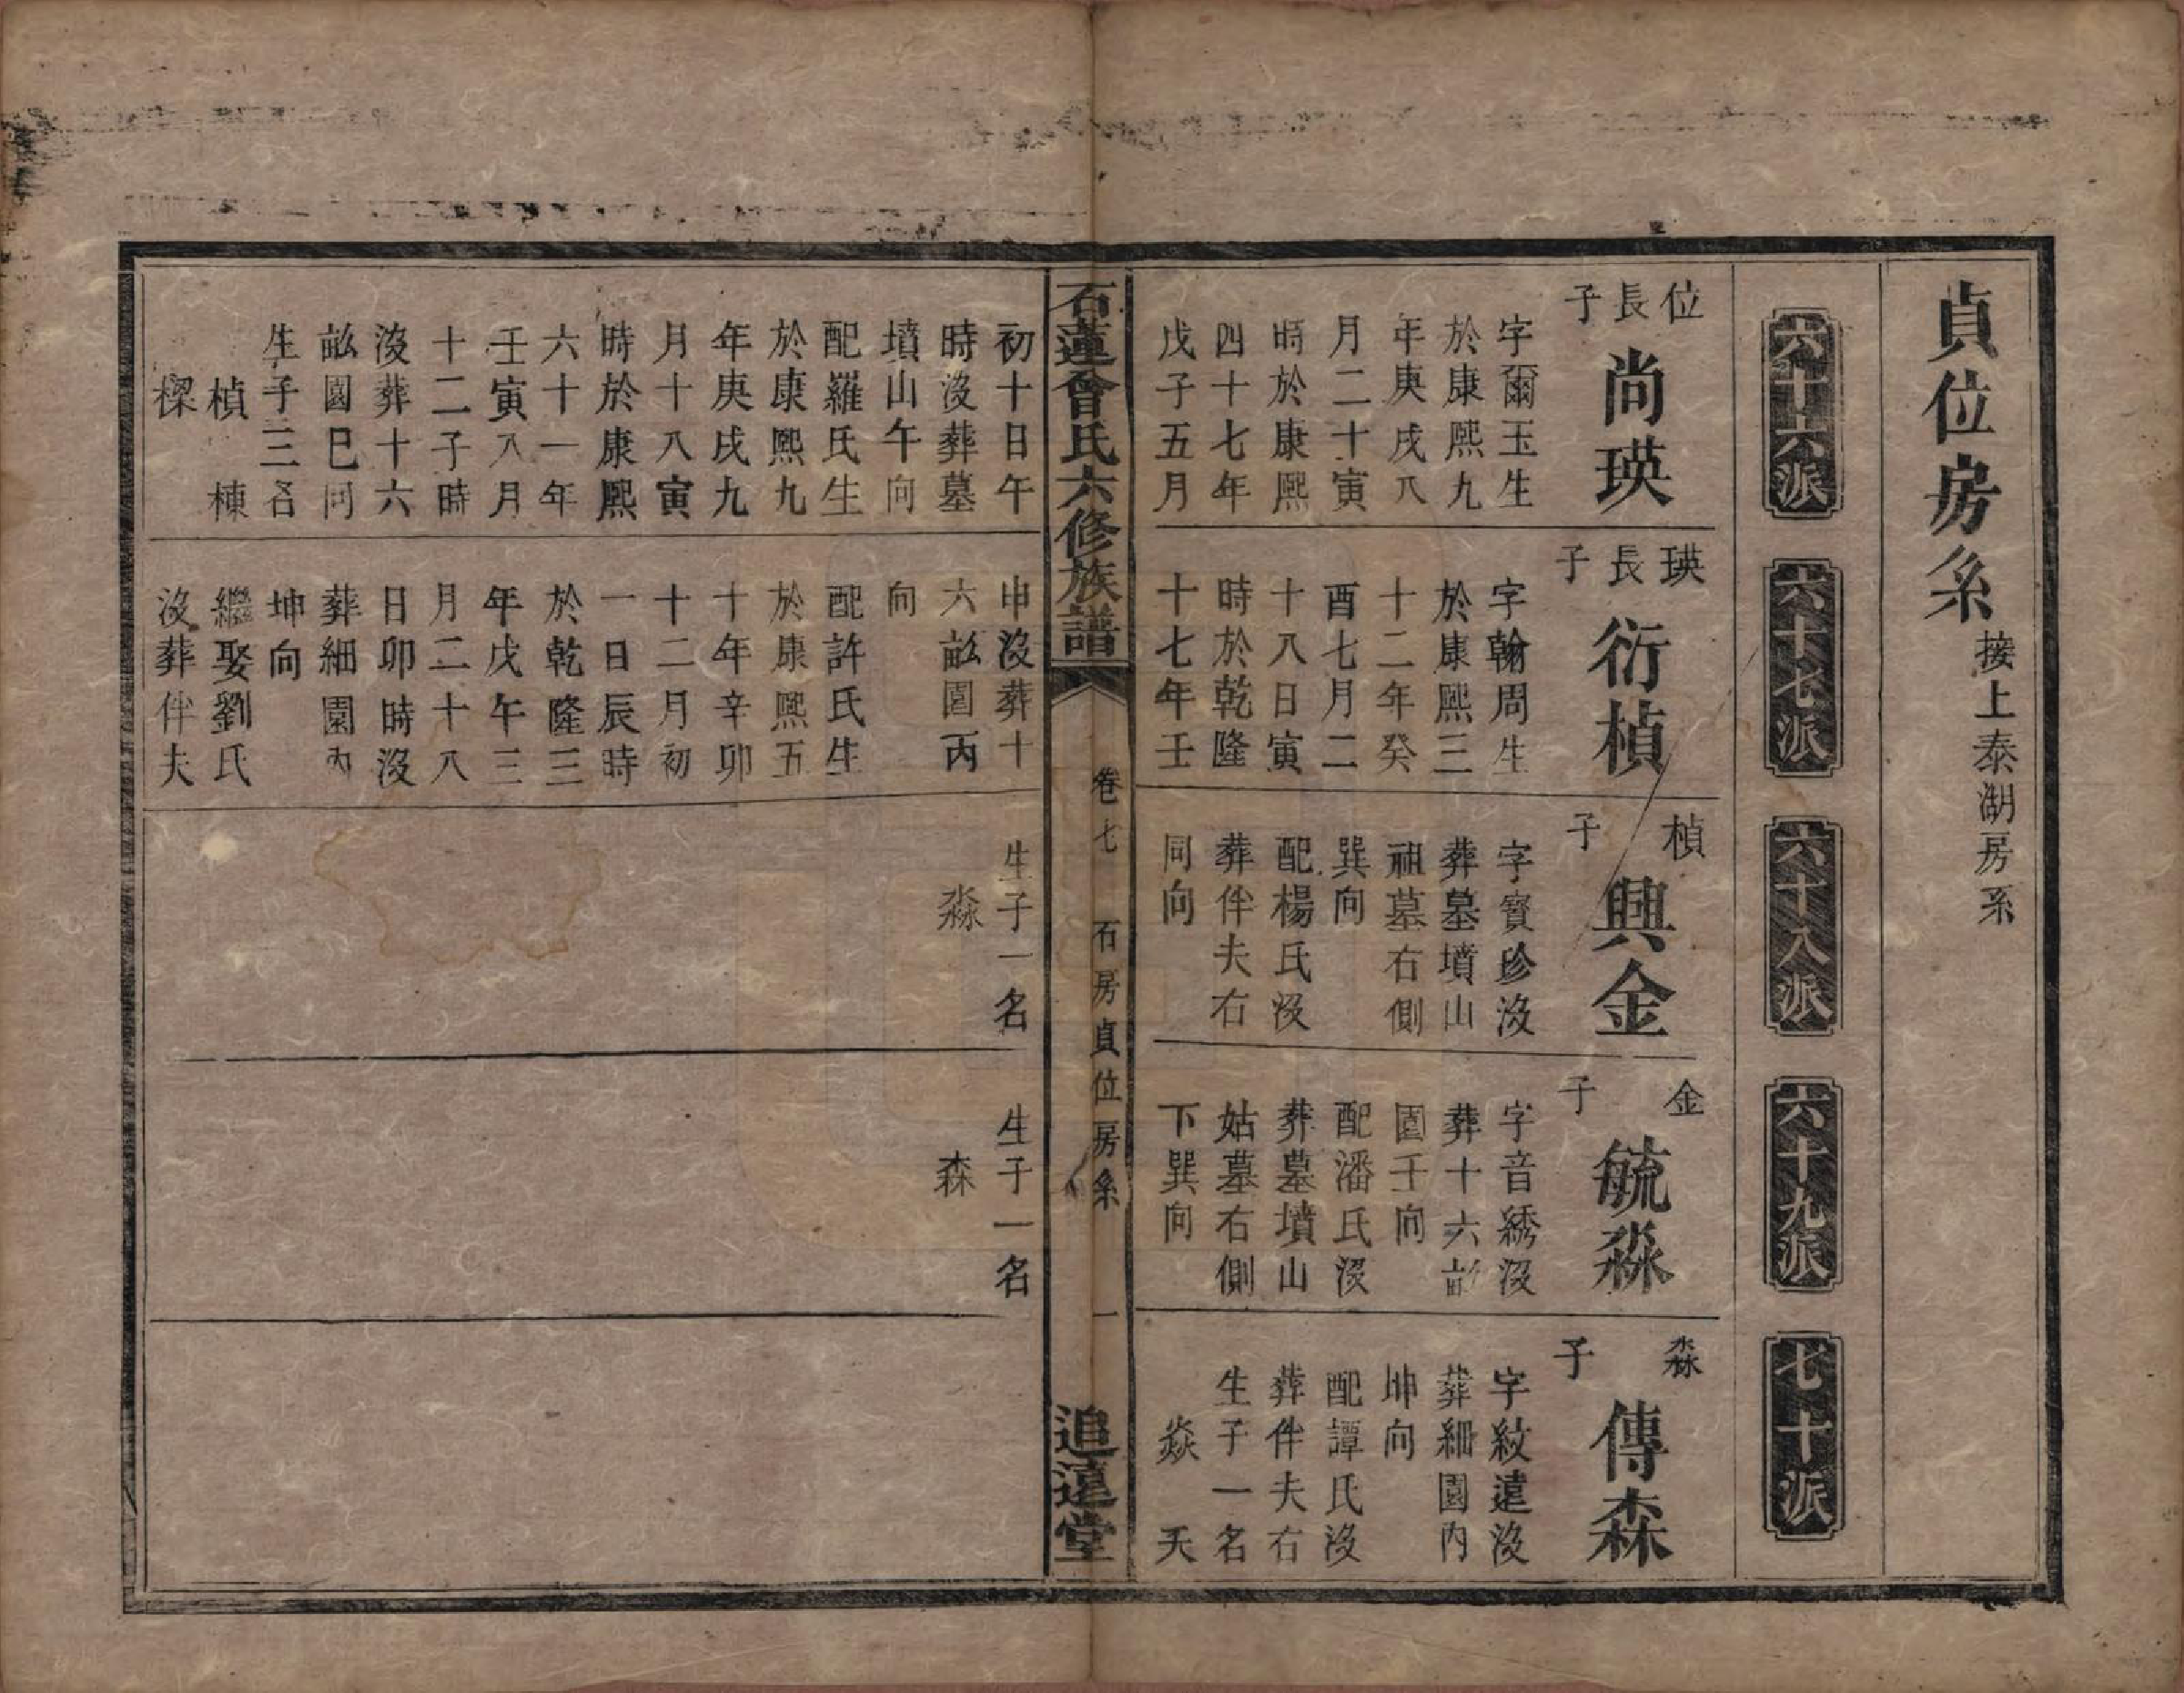 貞位房系 接上泰湖房系
六十六派
六十七派
六十八派
六十九派
七十派
位長子
尚瑛
字爾玉生
於康熙九
年庚戌八
月二十寅
時於康熙
四十七年
戊子五月
初十日午
時沒葬墓
墳山午向
配羅氏生
於康熙九
年庚戌九
月十八寅
時於康熙
六十一年
壬寅八月
十二子時
沒葬十六
畝園巳向
生子三名
楨 棟
樑
瑛長子
衍楨
字翰周生
於康熙三
十二年癸
酉七月二
十八日寅
時於乾隆
十七年壬
申沒葬十
六畝園丙
向
配許氏生
於康熙五
十年辛卯
十二月初
一日辰時
於乾隆三
年戊午三
月二十八
日卯時沒
葬細園內
坤向
繼娶劉氏
沒葬伴夫
楨子
興金
字寶珍沒
葬墓墳山
祖墓右側
巽向
配楊氏沒
葬伴夫右
同向
生子一名
淼
金子
毓淼
字音綉沒
葬十六畝
園壬向
配潘氏沒
葬墓墳山
姑墓右側
下巽向
生子一名
森
淼子
傳森
字紋遠沒
葬細園內
坤向
配譚氏沒
葬伴夫右
生子一名
焱 夭
石蓮曾氏六修族譜
卷七 石房貞位房系 一
追遠堂